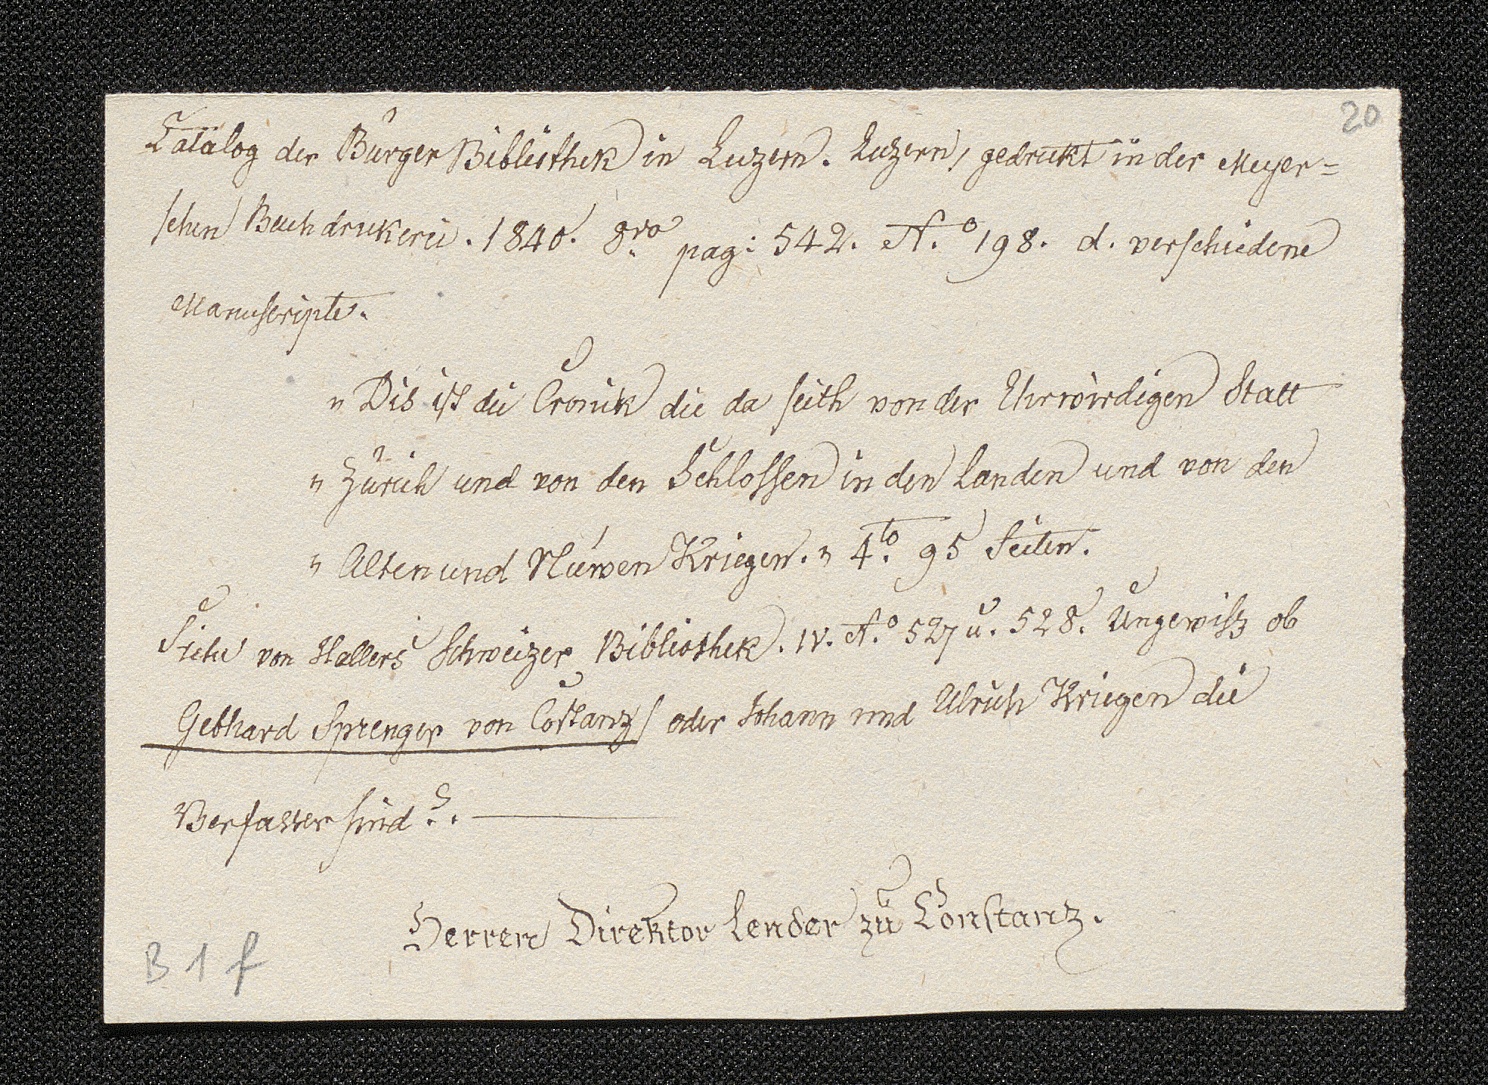 20
Catalog der Bürger Bibliothek in Luzern. Luzern, gedrukt in der Meyer=
schen Buchdrukerei. 1840. 8.vo pag: 542. N.o 198. d. verschiedene
Manuscripte.
„ Dis ist die Cronik die da seith von der Ehrwirdigen Statt
„ Zürich und von den Schlossen in den Landen und von den
„ Alten und Nüwen Kriegen. „ 4.to 95 Seiten.
Siehe von Hallers Schweizer Bibliothek. IV. N.o 527 u. 528. Ungewiss ob
Gebhard Sprenger von Costanz / oder Johann und Ulrich Kriegen die
Verfasser sind?. —
Herren Direktor Lender zu Constanz.
B 1 f